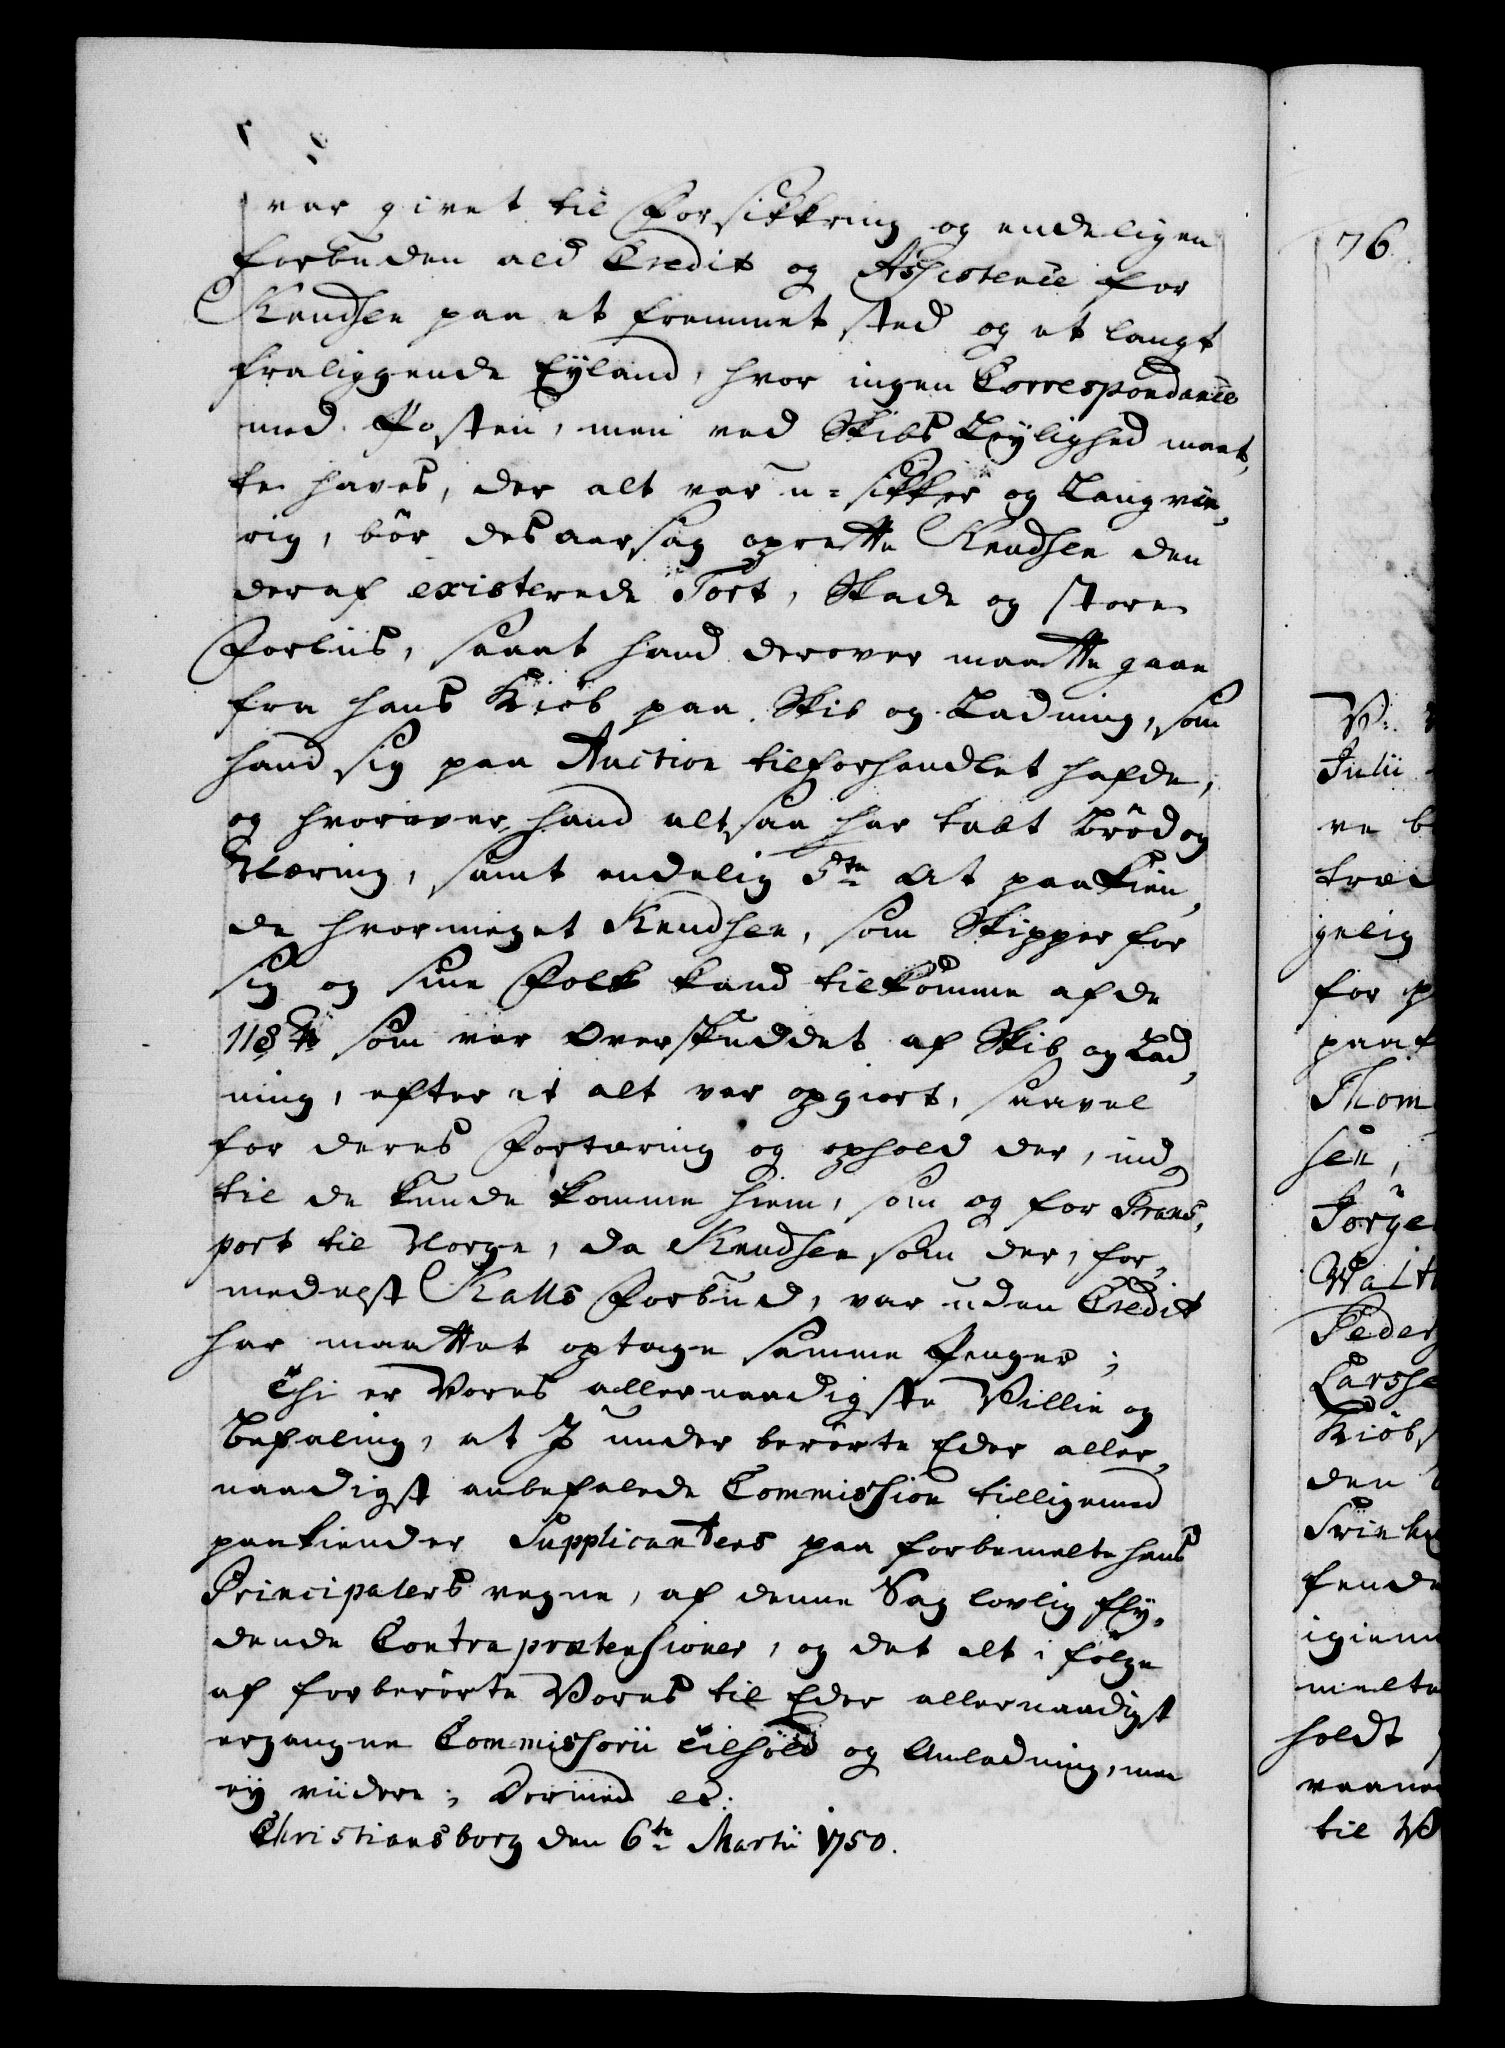 var givet til Forsikkring og endeligen
forbuden ald Credit og Assistence for
Knudsen paa et fremmet sted og et langt
fraliggende Eyland, hvor ingen Correspondance
med Posten, men ved Skibs Leylighed maat,
te haves, der alt var u-sikker og Langvæ,
rig, bör desaarsag oprette Knudsen den
deraf existerede Tort, Skade og store
Forliis, saasom hand derover maatte gaae
fra hans Kiöb paa Skib og Ladning, som
hand sig paa Auction tilforhandlet hafde,
og hvorover hand altsaa har tabt Bröd og
Næring, samt endelig 5te At paakien,
de hvormeget Knudsen, som Skipper for
sig og sine Folk kand tilkomme af de
118 som var Overskuddet af Skib og Lad,
ning, efter at alt var opgiort, saavel
for deres Fortæring og ophold der, ind,
til de kunde komme hiem, som og for Trans,
port til Norge, da Knudsen som der, for,
medelst Kalls Forbud, var uden Credit
har maattet optage samme Penger;
Thi er Vores allernaadigste Villie og
Befaling, at I under berörte Eder aller,
naadigst anbefalede Commission tilligemed
paakiender Supplicantens paa forbemelte hans
Principalers vegne, af denne Sag lovlig fly,
dende Contraprætensioner, og det alt i fölge
af forberörte Vores til Eder allernaadigst
ergangne Commissorii Tilhold og Anledning, men
ey viidere; Dermed etc:
Christiansborg den 6te Martii 1750.
76.
V:
Julii
ve be
træd
gelig
for p
paaf
Thom
sen,
Jörge
Walt
Peder
Larsse
Kiöb
den
fende
igienn
melte
holdt
til V